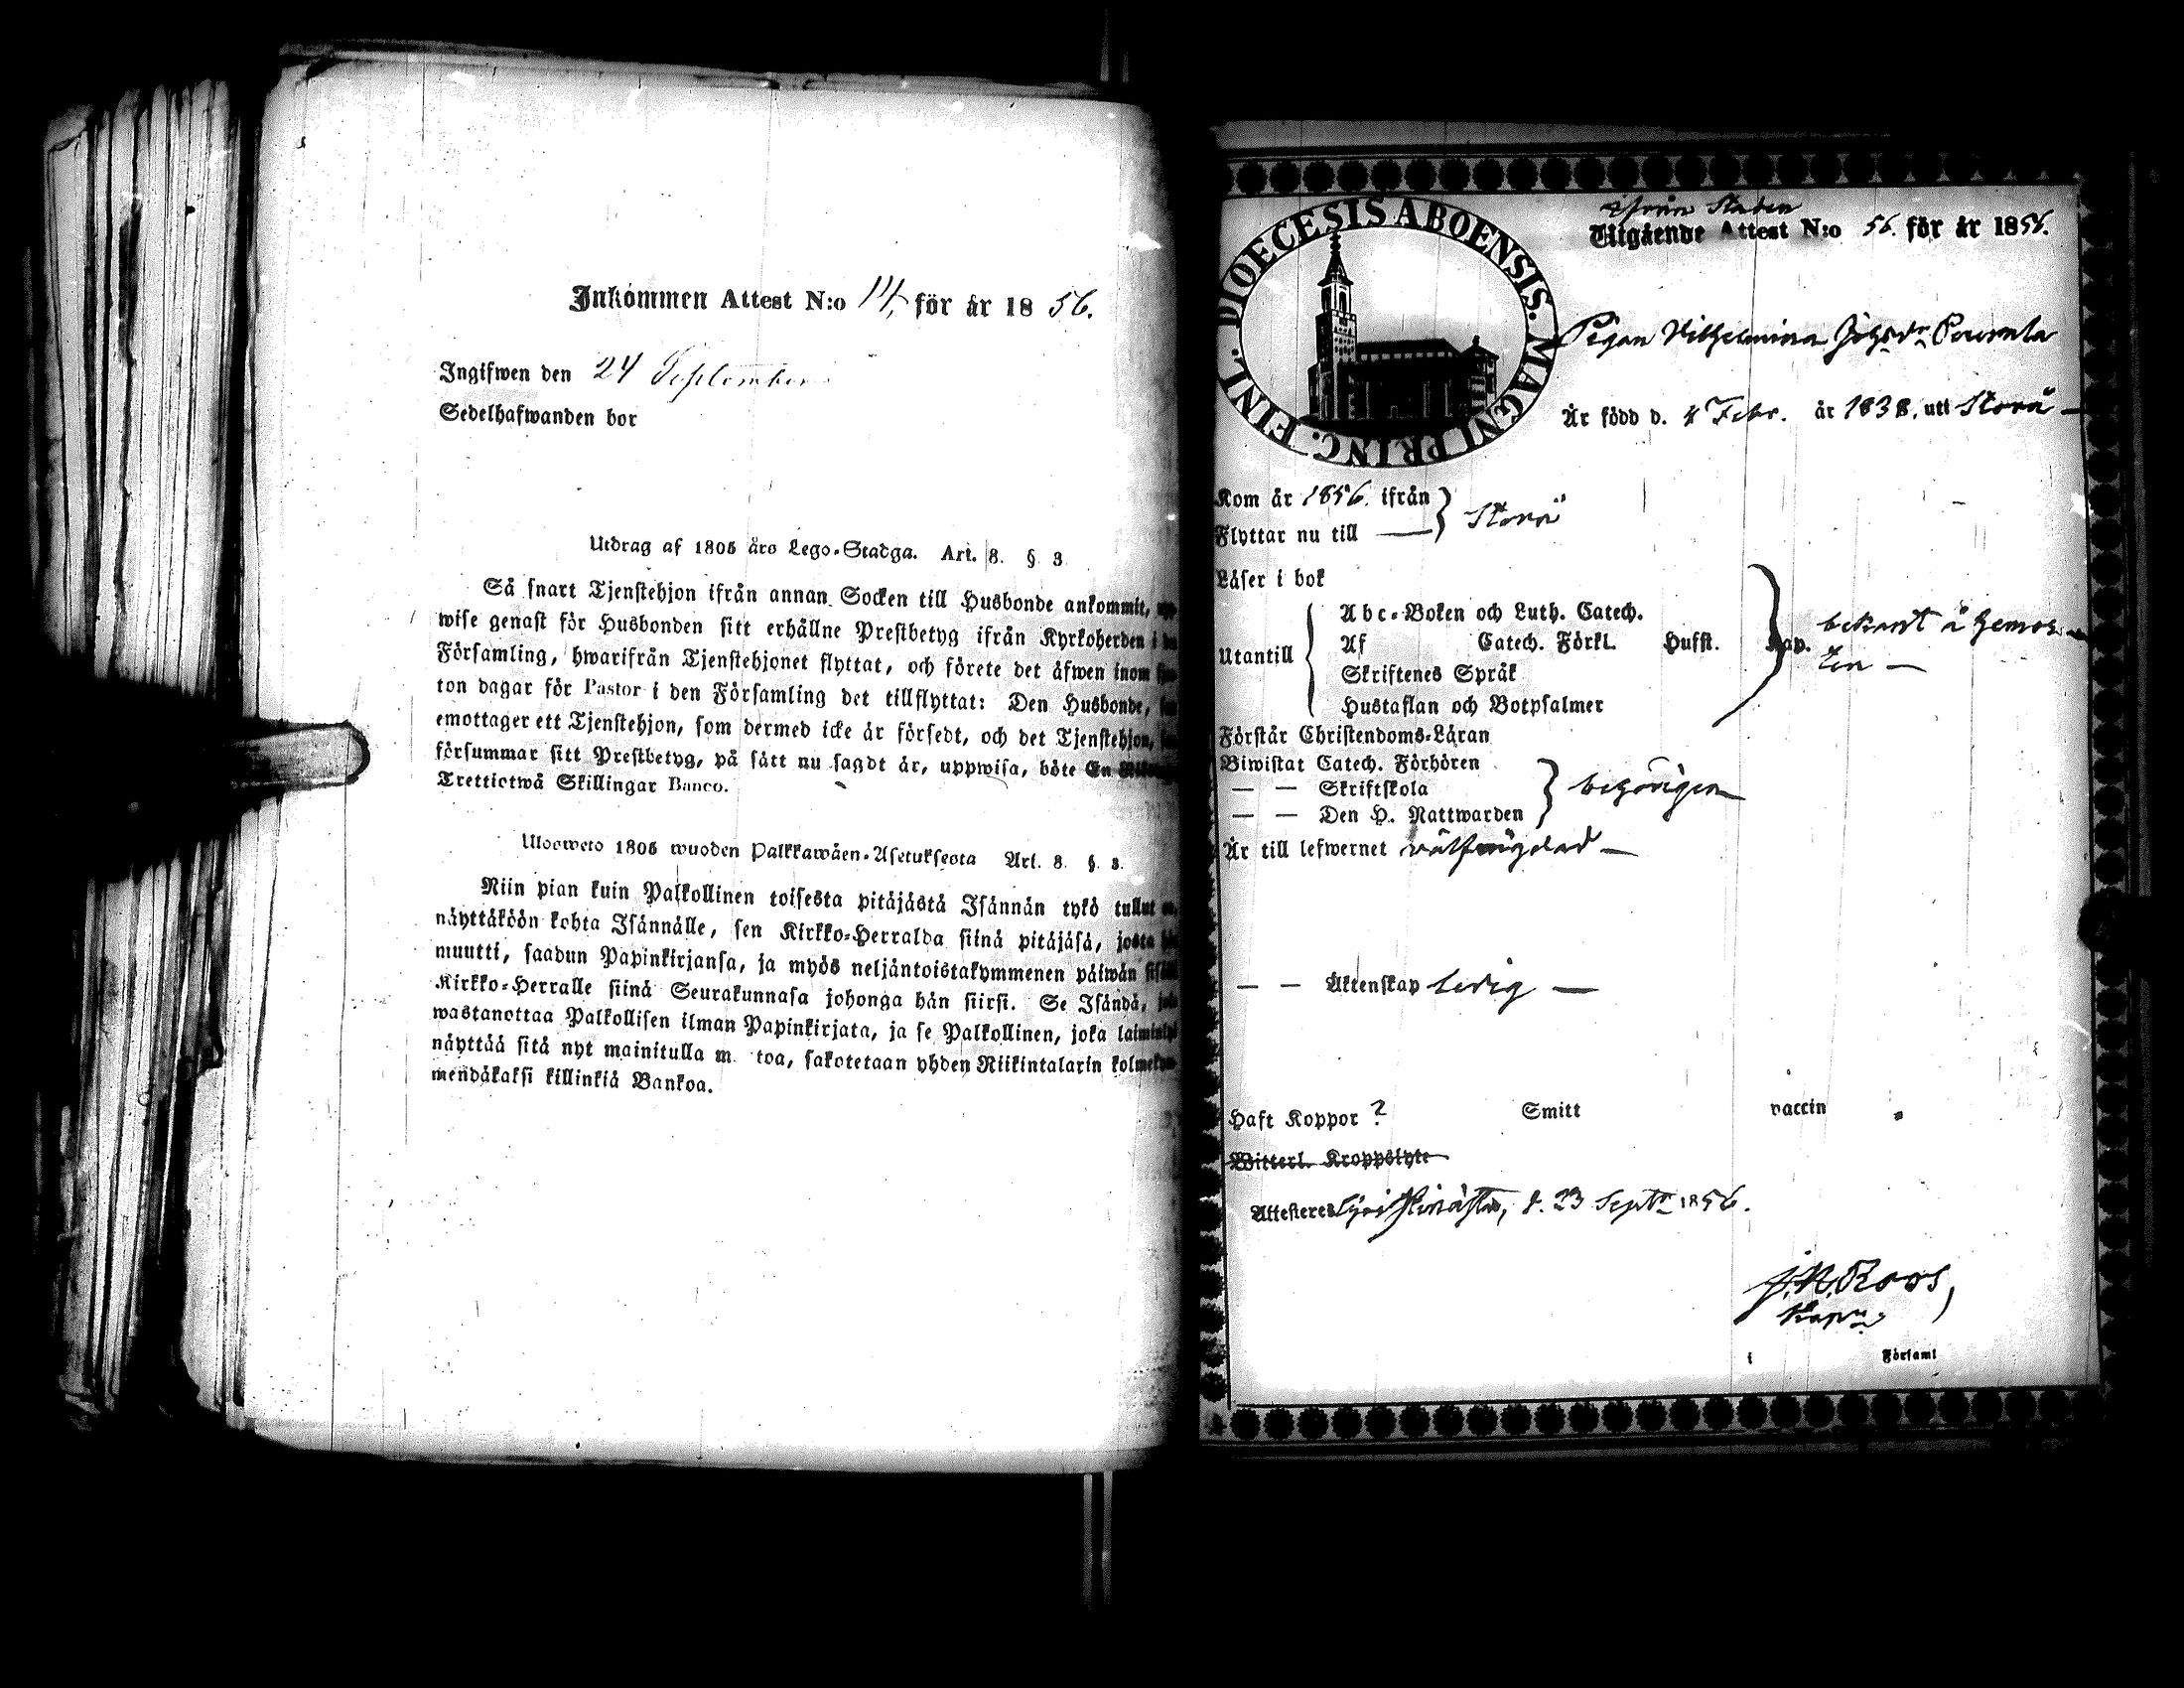 Inkommen Attest N:o 14, för år 1856.
Ingifwen den 24 September
Sedelhafwanden bor
Utdrag af 1805 års Lego-Stadga. Art. 8. § 3
Så snart Tjenstehjon ifrån annan Socken till Husbonde ankommit, upp-
wise genast för Husbonden sitt erhållne Prestbetyg ifrån Kyrkoherden i den
Församling, hwarifrån Tjenstehjonet flyttat, och förete det äfwen inom fjor-
ton dagar för Pastor i den Församling det tillflyttat: Den Husbonde, som
emottager ett Tjenstehjon, som dermed icke är försedt, och det Tjenstehjon, som
försummar sitt Prestbetyg, på sätt nu sagdt är, uppwisa, böte En
Trettiotwå Skillingar Banco.
Ulosweto 1805 wuoden Palkkawäen-Asetuksesta Art. 8. §. 3.
Niin pian kuin Palkollinen toisesta pitäjästä Isännän tykö tullut on,
näyttäköön kohta Isännälle, sen Kirkko-Herralda siinä pitäjäsä, josta hän
muutti, saadun Papinkirjansa, ja myös neljäntoistakymmenen päiwän sisällä
Kirkko-Herralle siinä Seurakunnasa johonga hän siirsi. Se Isändä, joka
wastanottaa Palkollisen ilman Papinkirjata, ja se Palkollinen, joka laiminlyö
näyttää sitä nyt mainitulla m toa, sakotetaan yhden Riikintalarin kolmekym-
mendäkaksi killinkiä Bankoa.
DIOECESIS ABOENSIS. MAGNI PRINC. FINL.
ifrån Staden
Utgående Attest N:o 56. för år 1856.
Pigan Vilhelmina
Är född d. 4 Febr. år 1838, uti Storå
Kom år 1856. ifrån
Flyttar nu till
Storå
Läser i bok
Utantill
Abc-Boken och Luth. Catech.
Af Catech. Förkl. Husst. Kap.
Skriftenes Språk
Hustaflan och Botpsalmer
bekant å hemor-
ten
Förstår Christendoms-Läran
Biwistat Catech. Förhören
— — Skriftskola
— — Den H. Nattwarden
behörigen
Är till lefwernet välfrägdad
— — Äktenskap ledig
Haft Koppor ? Smitt vaccin
Witterl. Kroppslyte
Attesteres d. 23 Septr 1856.
J. N. Roos,
Kapn
i Församl